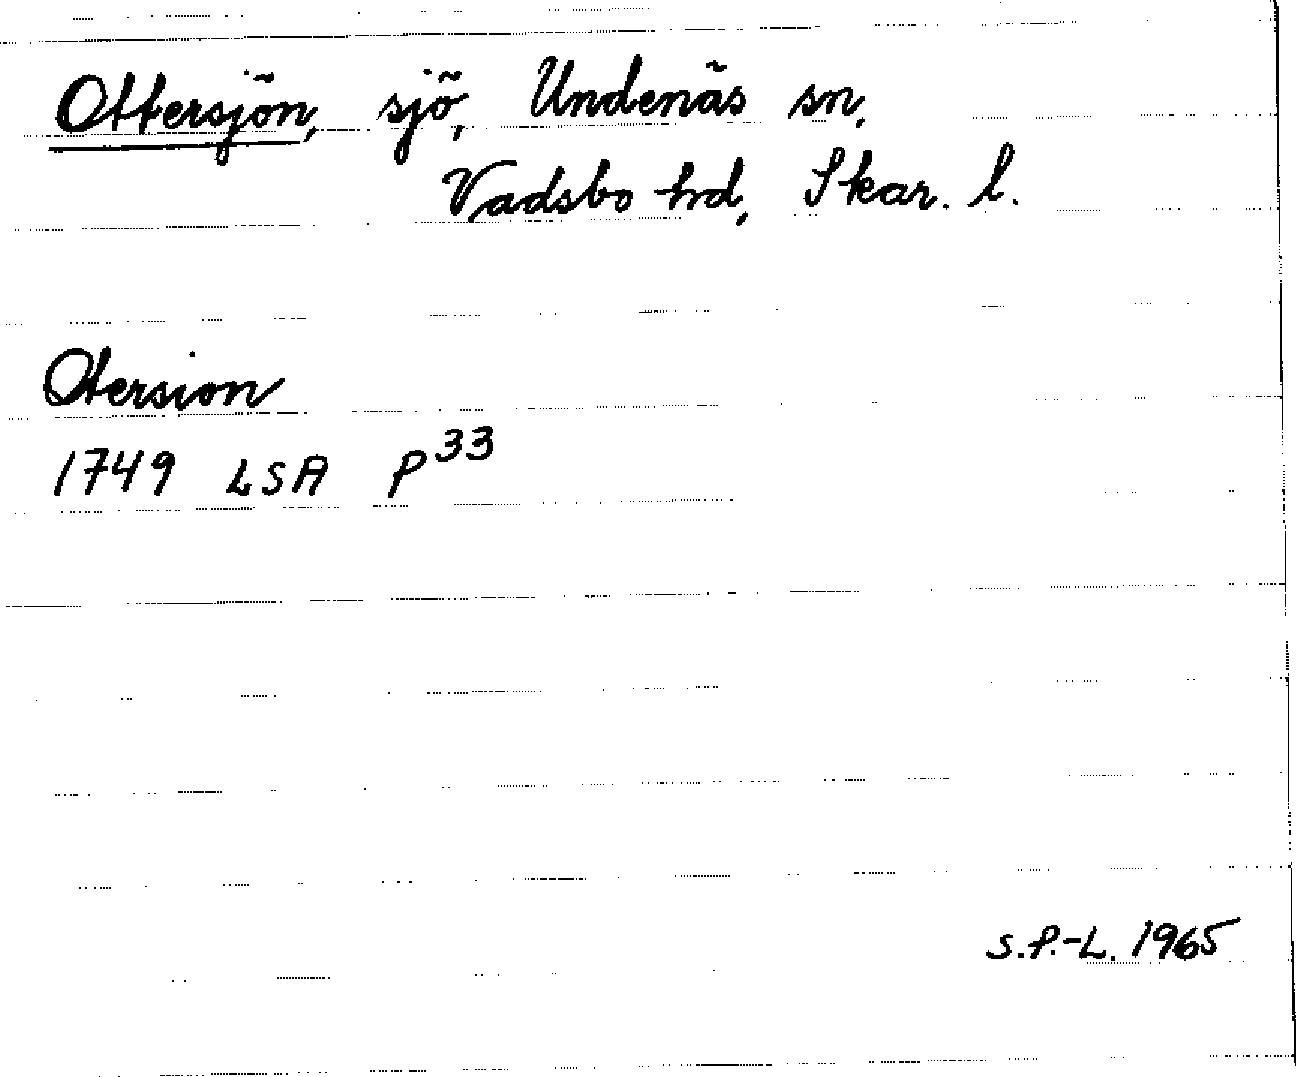 Ottersjön, sjö, Undenäs sn,
Vadsbo hd, Skar. l.
Otersion
1749 LSA P³³
S.P.-L. 1965